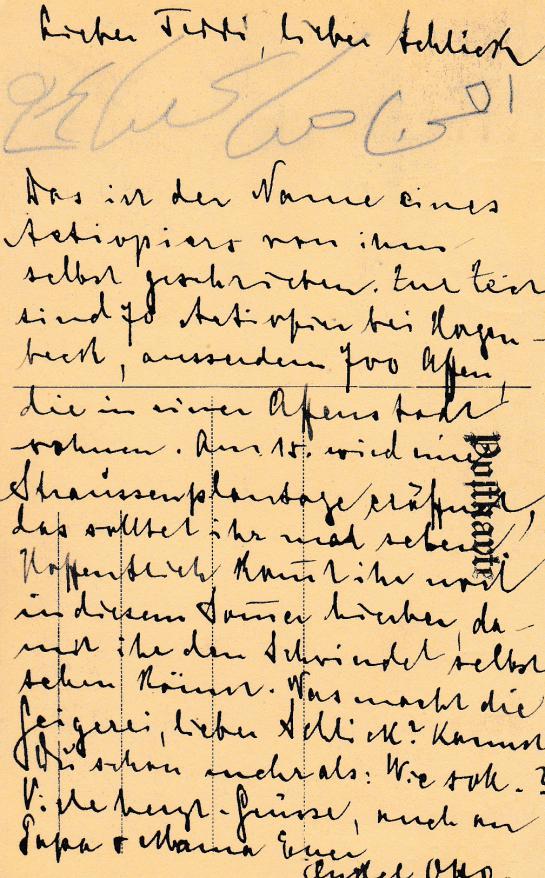 Lieber Teddi, lieber Schlick
Das ist der Name eines
Aetiopiers von ihm
selbst geschrieben. Zur Zeit
sind 70 Aetiopier bei Hagen-
beck, ausserdem 700 Affen,
die in einer Affenstadt
wohnen. Am 15. wird eine
Straussenplantage eröffnet,
das solltet ihr mal sehen
Hoffentlich kom̅t ihr noch
in diesem Som̅er hierher, da-
mit ihr den Schwindel selbst
sehen könnt. Was macht die
Geigerei, lieber Schlick? Kannst
Du schon mehr als:
Viele herzl. Grüsse, auch an
Papa + Mama Euer
Onkel Otto.
Postkarte